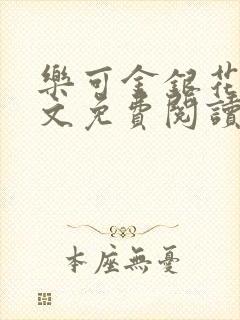 樂可金銀花
文免費閱讀
本座無憂